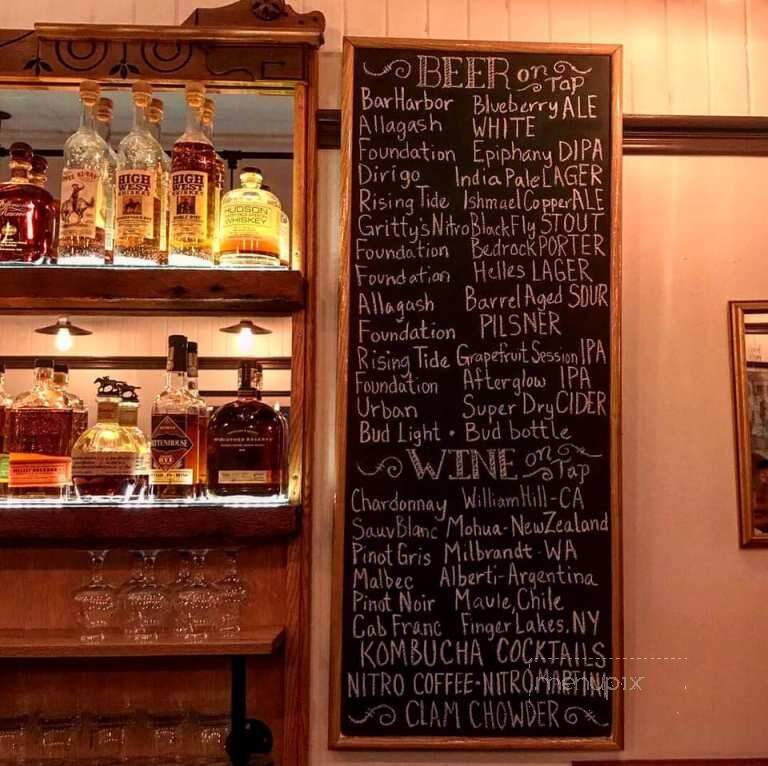 BEER on Tap
BarHarbor Blueberry ALE
Allagash WHITE
Foundation Epiphany DIPA
Dirigo India Pale LAGER
Rising Tide Ishmael Copper ALE
Gritty's Nitro Black Fly STOUT
Foundation Bedrock PORTER
Foundation Helles LAGER
Allagash Barrel Aged SOUR
Foundation PILSNER
Rising Tide Grapefruit Session IPA
Foundation Afterglow IPA
Urban Super Dry CIDER
Bud Light • Bud bottle
WINE on Tap
Chardonnay William Hill - CA
Sauv Blanc Mohua - New Zealand
Pinot Gris Milbrandt - WA
Malbec Alberti - Argentina
Pinot Noir Maule, Chile
Cab Franc Finger Lakes, NY
KOMBUCHA COCKTAILS
NITRO COFFEE • NITRO MARTINI
CLAM CHOWDER
menupix
HIGH WEST
WHISKEY
HIGH WEST
HUDSON
WHISKEY
RITTENHOUSE
RYE
WOODFORD RESERVE